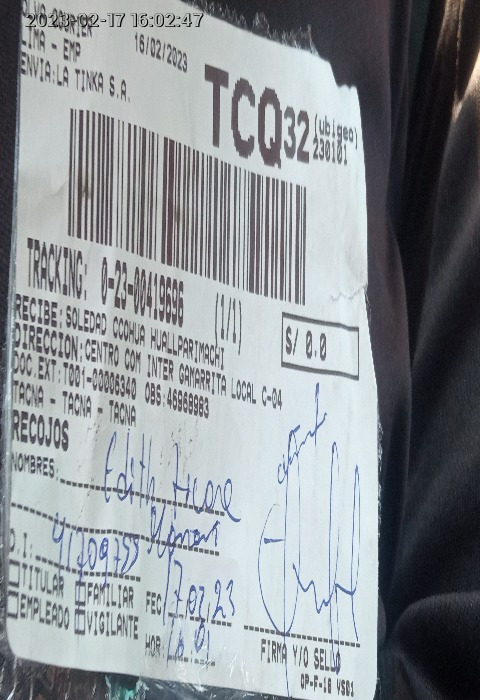 2023-02-17 16:02:47
16/02/2023
LIMA - EMP
ENVIA:LA TINKA S.A.
TCQ32
(ubigeo)
230101
TRACKING: 0-23-00419696 (1/1)
S/ 0.0
RECIBE:SOLEDAD CCOHUA HUALLPARIMACHI
DIRECCION:CENTRO COM INTER GAMARRITA LOCAL C-04
DOC.EXT:T001-00006340 OBS:46969983
TACNA - TACNA - TACNA
RECOJOS
NOMBRES: Edith
D.I.: 41709755
TITULAR FAMILIAR
EMPLEADO VIGILANTE
FEC: 17,02,23
HOR:
FIRMA Y/O SELLO
OP-F-18 VS01